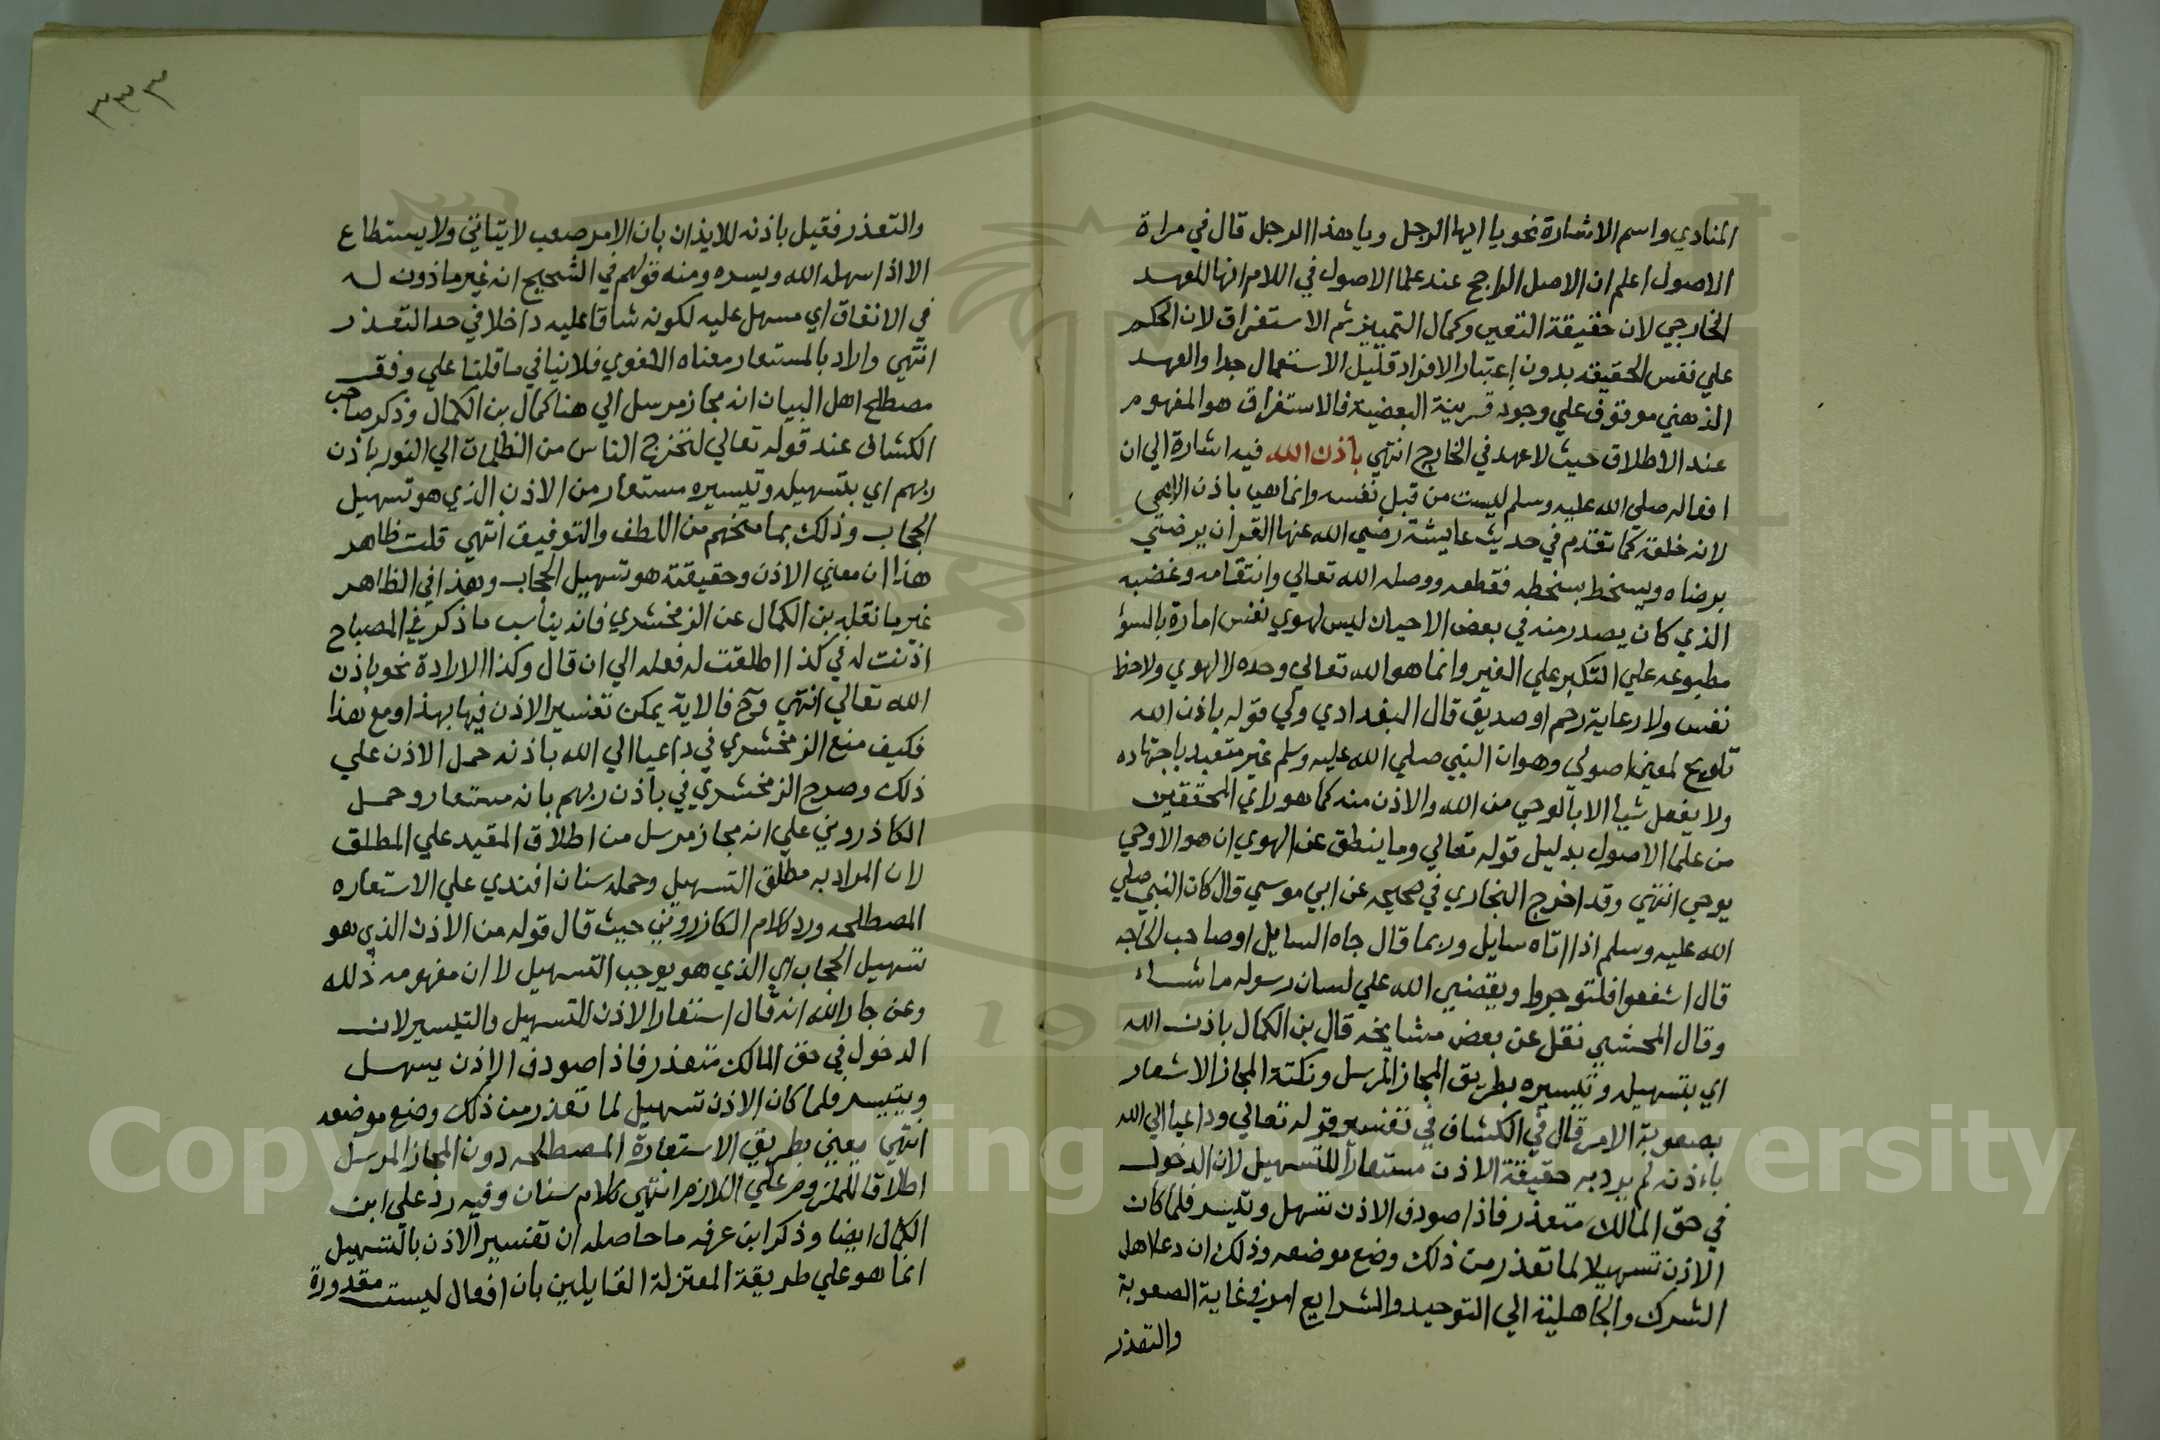 المنادي واسم الاشارة نحو يا ايها الرجل ويا هذا الرجل قال في مراة
الاصول اعلم ان الاصل الراجح عند علما الاصول في اللام انها للعهد
الخارجي لان حقيقة التعين وكمال التمييز ثم الاستغراق لان الحكم
علي نفس الحقيقه بدون اعتبار الافراد قليل الاستعمال جدا والعهد
الذهني موقوف علي وجود قرينة البعضية فالاستغراق هو المفهوم
عند الاطلاق حيث لا عهد في الخارج انتهي باذن الله فيه اشارة الي ان
افعاله صلي الله عليه وسلم ليست من قبل نفسه وانما هي باذن الاهي
لانه خلقه كما تقدم في حديث عايشة رضي الله عنها القران يرضي
برضاه ويسخط بسخطه فقطعه ووصله الله تعالي وانتقامه وغضبه
الذي كان يصدر منه في بعض الاحيان ليس لهوي نفس امارة بالسؤ
مطبوعه علي التكبر علي الغير وانما هو الله تعالي وحده لا لهوي ولاحظ
نفس ولا رعاية رحم او صديق قال البغدادي وفي قوله باذن الله
تلويح لمعني اصولي وهو ان النبي صلي الله عليه وسلم غير متعبد باجتهاده
ولا يفعل شيا الا بالوحي من الله والاذن منه كما هو راي المحققين
من علما الاصول بدليل قوله تعالي وما ينطق عن الهوي ان هو الا وحي
يوحي انتهي وقد اخرج البخاري في صحيحه عن ابي موسي قال كان النبي صلي
الله عليه وسلم اذا اتاه سايل وربما قال جاه السايل او صاحب الحاجه
قال اشفعوا فلتوجروا ويقضي الله علي لسان رسوله ما شاء
وقال المحشي نقل عن بعض مشايخه قال بن الكمال باذن الله
اي بتسهيله وتيسيره بطريق المجاز المرسل ونكتة المجاز الاشعار
بصعوبة الامر قال في الكشاف في تفسير قوله تعالي وداعيا الي الله
باذنه لم يرد به حقيقة الاذن مستعارا للتسهيل لان الدخول
في حق المالك متعذر فاذا صودف الاذن تسهل وتيسر فلما كان
الاذن تسهيلا لما تعذر من ذلك وضع موضعه وذلك ان دعا اهل
الشرك والجاهلية الي التوحيد والشرايع امر في غاية الصعوبة
والتعذر
٣٣٣
والتعذر فقيل باذنه للايذان بان الامر صعب لا يتاتي ولا يستطاع
الا اذا سهله الله ويسره ومنه قولهم في الشحيح انه غير ماذون له
في الانفاق اي مسهل عليه لكونه شاقا عليه داخلا في حد التعذر
انتهي واراد بالمستعار معناه اللغوي فلا ينافي ما قلنا علي وفق
مصطلح اهل البيان انه مجاز مرسل الي هنا كمال بن الكمال وذكر صاحب
الكشاف عند قوله تعالي لتخرج الناس من الظلمات الي النور باذن
ربهم اي بتسهيله وتيسيره مستعار من الاذن الذي هو تسهيل
الحجاب وذلك بما منحهم من اللطف والتوفيق انتهي قلت ظاهر
هذا ان معني الاذن وحقيقته هو تسهيل الحجاب وهذا في الظاهر
غير ما نقله بن الكمال عن الزمخشري فانه يناسب ما ذكر في المصباح
اذنت له في كذا اطلقت له فعله الي ان قال وكذا الارادة نحو باذن
الله تعالي انتهي وح فالاية يمكن تفسير الاذن فيها بهذا ومع هذا
فكيف منع الزمخشري في داعيا الي الله باذنه حمل الاذن علي
ذلك وصرح الزمخشري في باذن ربهم بانه مستعار وحمل
الكاذروني علي انه مجاز مرسل من اطلاق المقيد علي المطلق
لان المراد به مطلق التسهيل وحمله سنان افندي علي الاستعاره
المصطلحه ورد كلام الكازروني حيث قال قوله من الاذن الذي هو
تسهيل الحجاب اي الذي هو يوجب التسهيل لا ان مفهومه ذلك
وعن جار الله انه قال استعار الاذن للتسهيل والتيسير لان
الدخول في حق المالك متعذر فاذا صودف الاذن يسهل
ويتيسر فلما كان الاذن تسهيل لما تعذر من ذلك وضع موضعه
انتهي يعني بطريق الاستعارة المصطلحه دون المجاز المرسل
اطلاقا للملزوم علي اللازم انتهي كلام سنان وفيه رد علي ابن
الكمال ايضا وذكر ابن عرفه ما حاصله ان تفسير الاذن بالتسهيل
انما هو علي طريقة المعتزلة القايلين بان افعال ليست مقدورة
Copyright © King University
1957